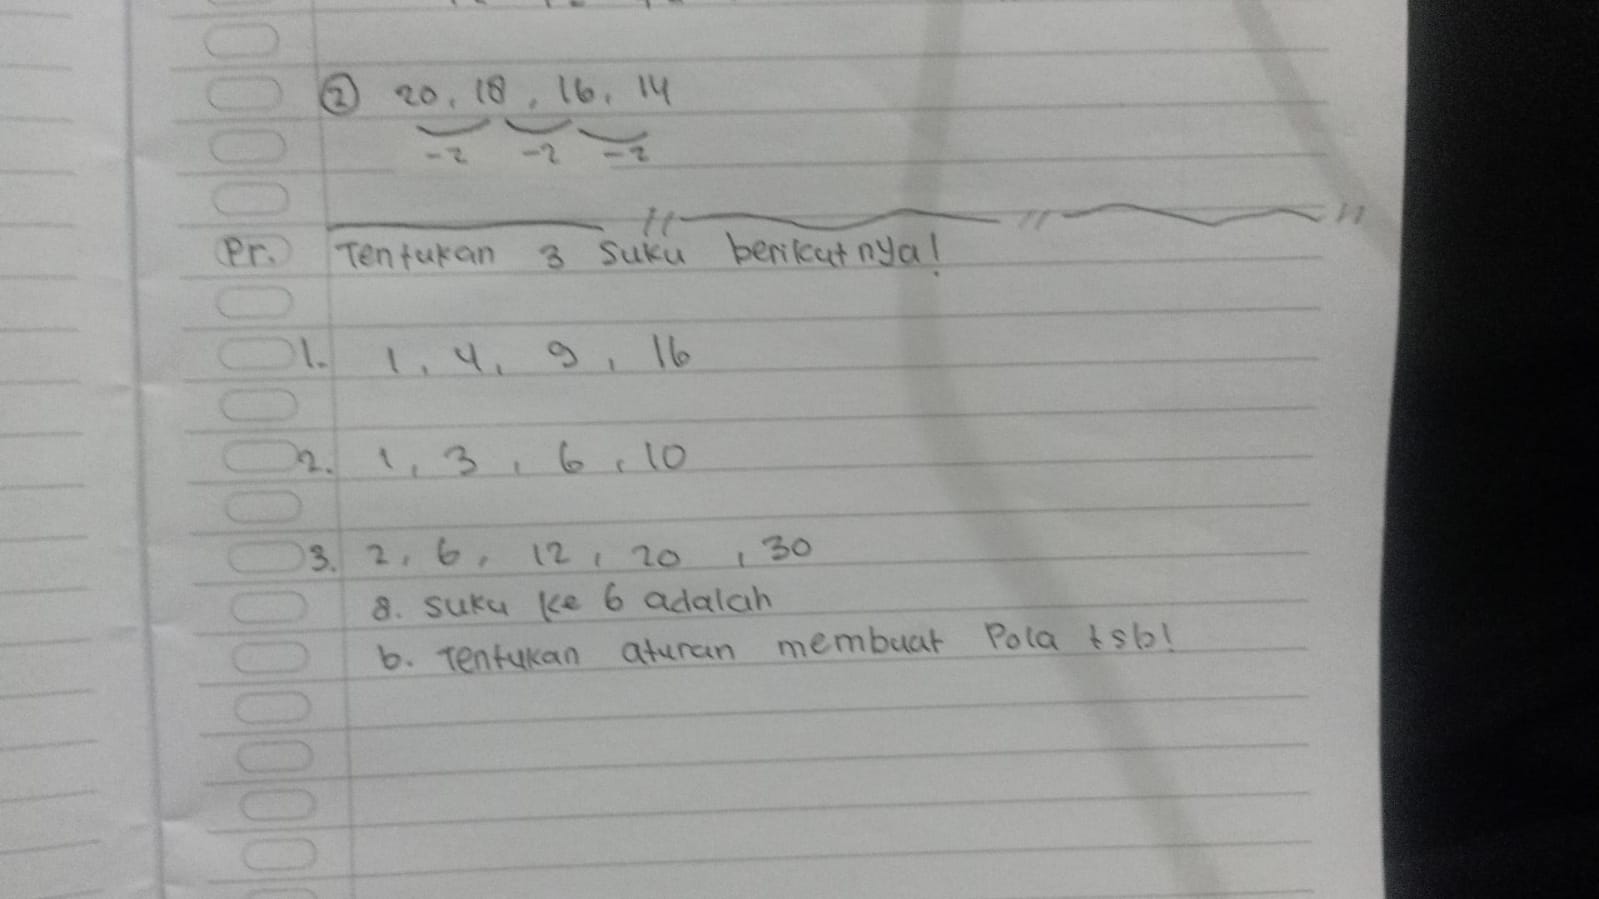 ② 20, 18, 16, 14
-2 -2 -2
Pr. Tentukan 3 Suku berikutnya!
1. 1, 4, 9, 16
2. 1, 3, 6, 10
3. 2, 6, 12, 20, 30
a. suku ke 6 adalah
b. Tentukan aturan membuat Pola tsb!